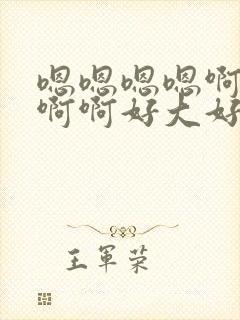 嗯嗯嗯嗯啊
啊啊好大好
王军荣